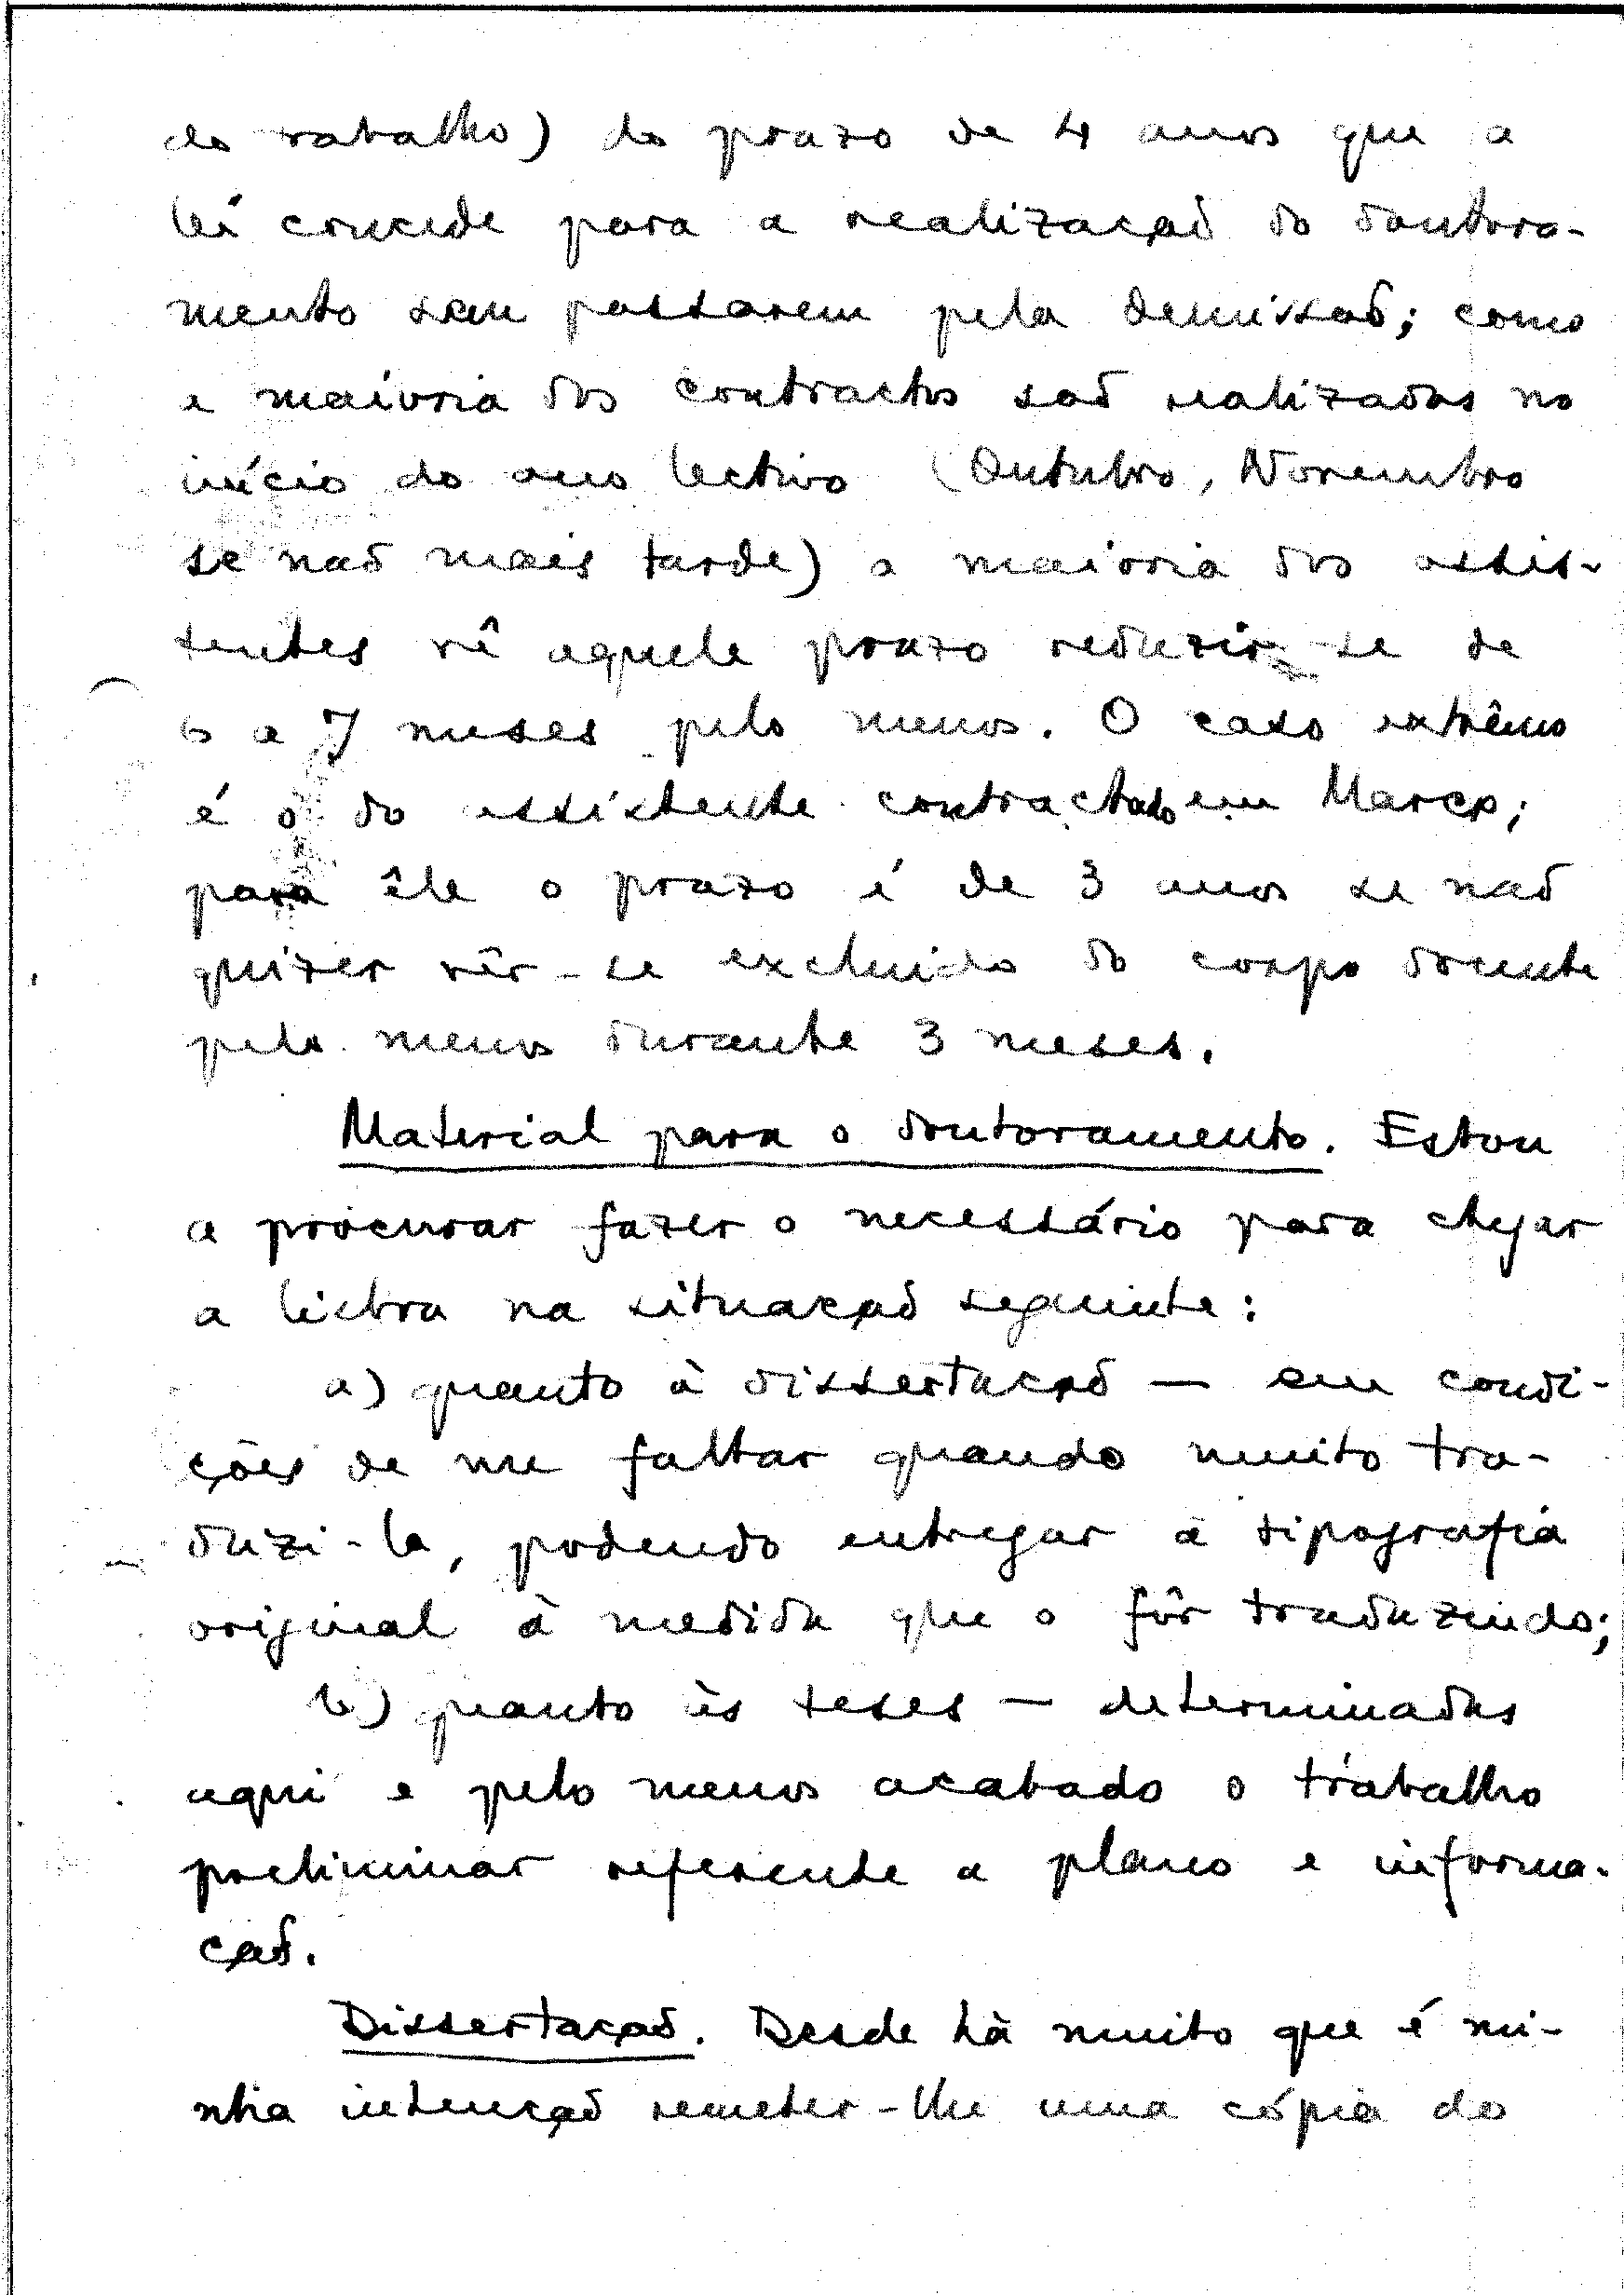 do trabalho) do prazo de 4 anos que a
lei concede para a realização do doutora-
mento sem passarem pela demissão; como
a maioria dos contractos são realizados no
início do ano lectivo (Outubro, Novembro
se não mais tarde) a maioria dos assis-
tentes vê aquele prazo reduzir-se de
6 a 7 meses pelo menos. O caso extrêmo
é o do assistente contractado em Março;
para êle o prazo é de 3 anos se não
quizer vêr-se excluido do corpo docente
pelo menos durante 3 meses.
Material para o doutoramento. Estou
a procurar fazer o necessário para chegar
a Lisboa na situação seguinte:
a) quanto à dissertação — em condi-
ções de me faltar quando muito tra-
duzi-la, podendo entregar à tipografia
original à medida que o fôr traduzindo;
b) quanto às teses — determinadas
aqui e pelo menos acabado o trabalho
preliminar referente a plano e informa-
ção.
Dissertação. Desde há muito que é mi-
nha intenção remeter-lhe uma cópia do